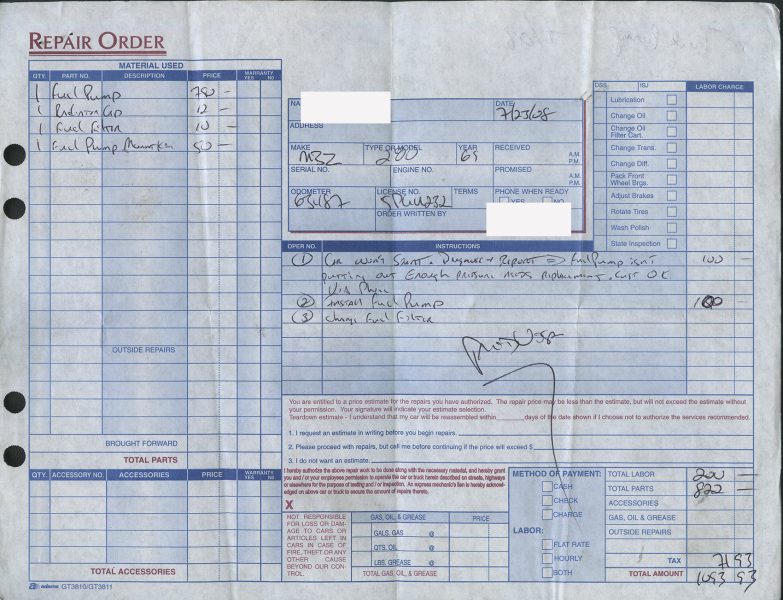 REPAIR ORDER
MATERIAL USED
QTY. PART NO. DESCRIPTION PRICE WARRANTY YES NO
1 Fuel Pump 750 —
1 Radiator Cap 12 —
1 Fuel Filter 10 —
1 Fuel Pump 50 —
OUTSIDE REPAIRS
BROUGHT FORWARD
TOTAL PARTS
QTY. ACCESSORY NO. ACCESSORIES PRICE WARRANTY YES NO
TOTAL ACCESSORIES
adams GT3810/GT3811
NA
DATE 7/23/08
ADDRESS
MAKE MBZ TYPE OR MODEL 280 YEAR 69 RECEIVED A.M. P.M.
SERIAL NO. ENGINE NO. PROMISED A.M. P.M.
ODOMETER 65487 LICENSE NO. TERMS PHONE WHEN READY
YES NO
ORDER WRITTEN BY
DSS ISJ LABOR CHARGE
Lubrication
Change Oil
Change Oil Filter Cart.
Change Trans.
Change Diff.
Pack Front Wheel Brgs.
Adjust Brakes
Rotate Tires
Wash Polish
State Inspection
OPER NO. INSTRUCTIONS
1 Car won't Start. Diagnose + Report => Fuel Pump isn't 100 —
putting out Enough pressure needs replacement. Cust OK
Via Phone
2 Install Fuel Pump 100 —
3 Change Fuel Filter
You are entitled to a price estimate for the repairs you have authorized. The repair price may be less than the estimate, but will not exceed the estimate without
your permission. Your signature will indicate your estimate selection.
Teardown estimate - I understand that my car will be reassembled within ______ days of the date shown if I choose not to authorize the services recommended.
1. I request an estimate in writing before you begin repairs.
2. Please proceed with repairs, but call me before continuing if the price will exceed $
3. I do not want an estimate.
I hereby authorize the above repair work to be done along with the necessary material, and hereby grant
you and / or your employees permission to operate the car or truck herein described on streets, highways
or elsewhere for the purpose of testing and / or inspection. An express mechanic's lien is hereby acknowl-
edged on above car or truck to secure the amount of repairs thereto.
X
NOT RESPONSIBLE
FOR LOSS OR DAM-
AGE TO CARS OR
ARTICLES LEFT IN
CARS IN CASE OF
FIRE, THEFT OR ANY
OTHER CAUSE
BEYOND OUR CON-
TROL.
GAS, OIL, & GREASE PRICE
GALS. GAS @
QTS. OIL @
LBS. GREASE @
TOTAL GAS, OIL, & GREASE
METHOD OF PAYMENT:
CASH
CHECK
CHARGE
LABOR:
FLAT RATE
HOURLY
BOTH
TOTAL LABOR 200 —
TOTAL PARTS 822 —
ACCESSORIES
GAS, OIL & GREASE
OUTSIDE REPAIRS
TAX 71 93
TOTAL AMOUNT 1093 93